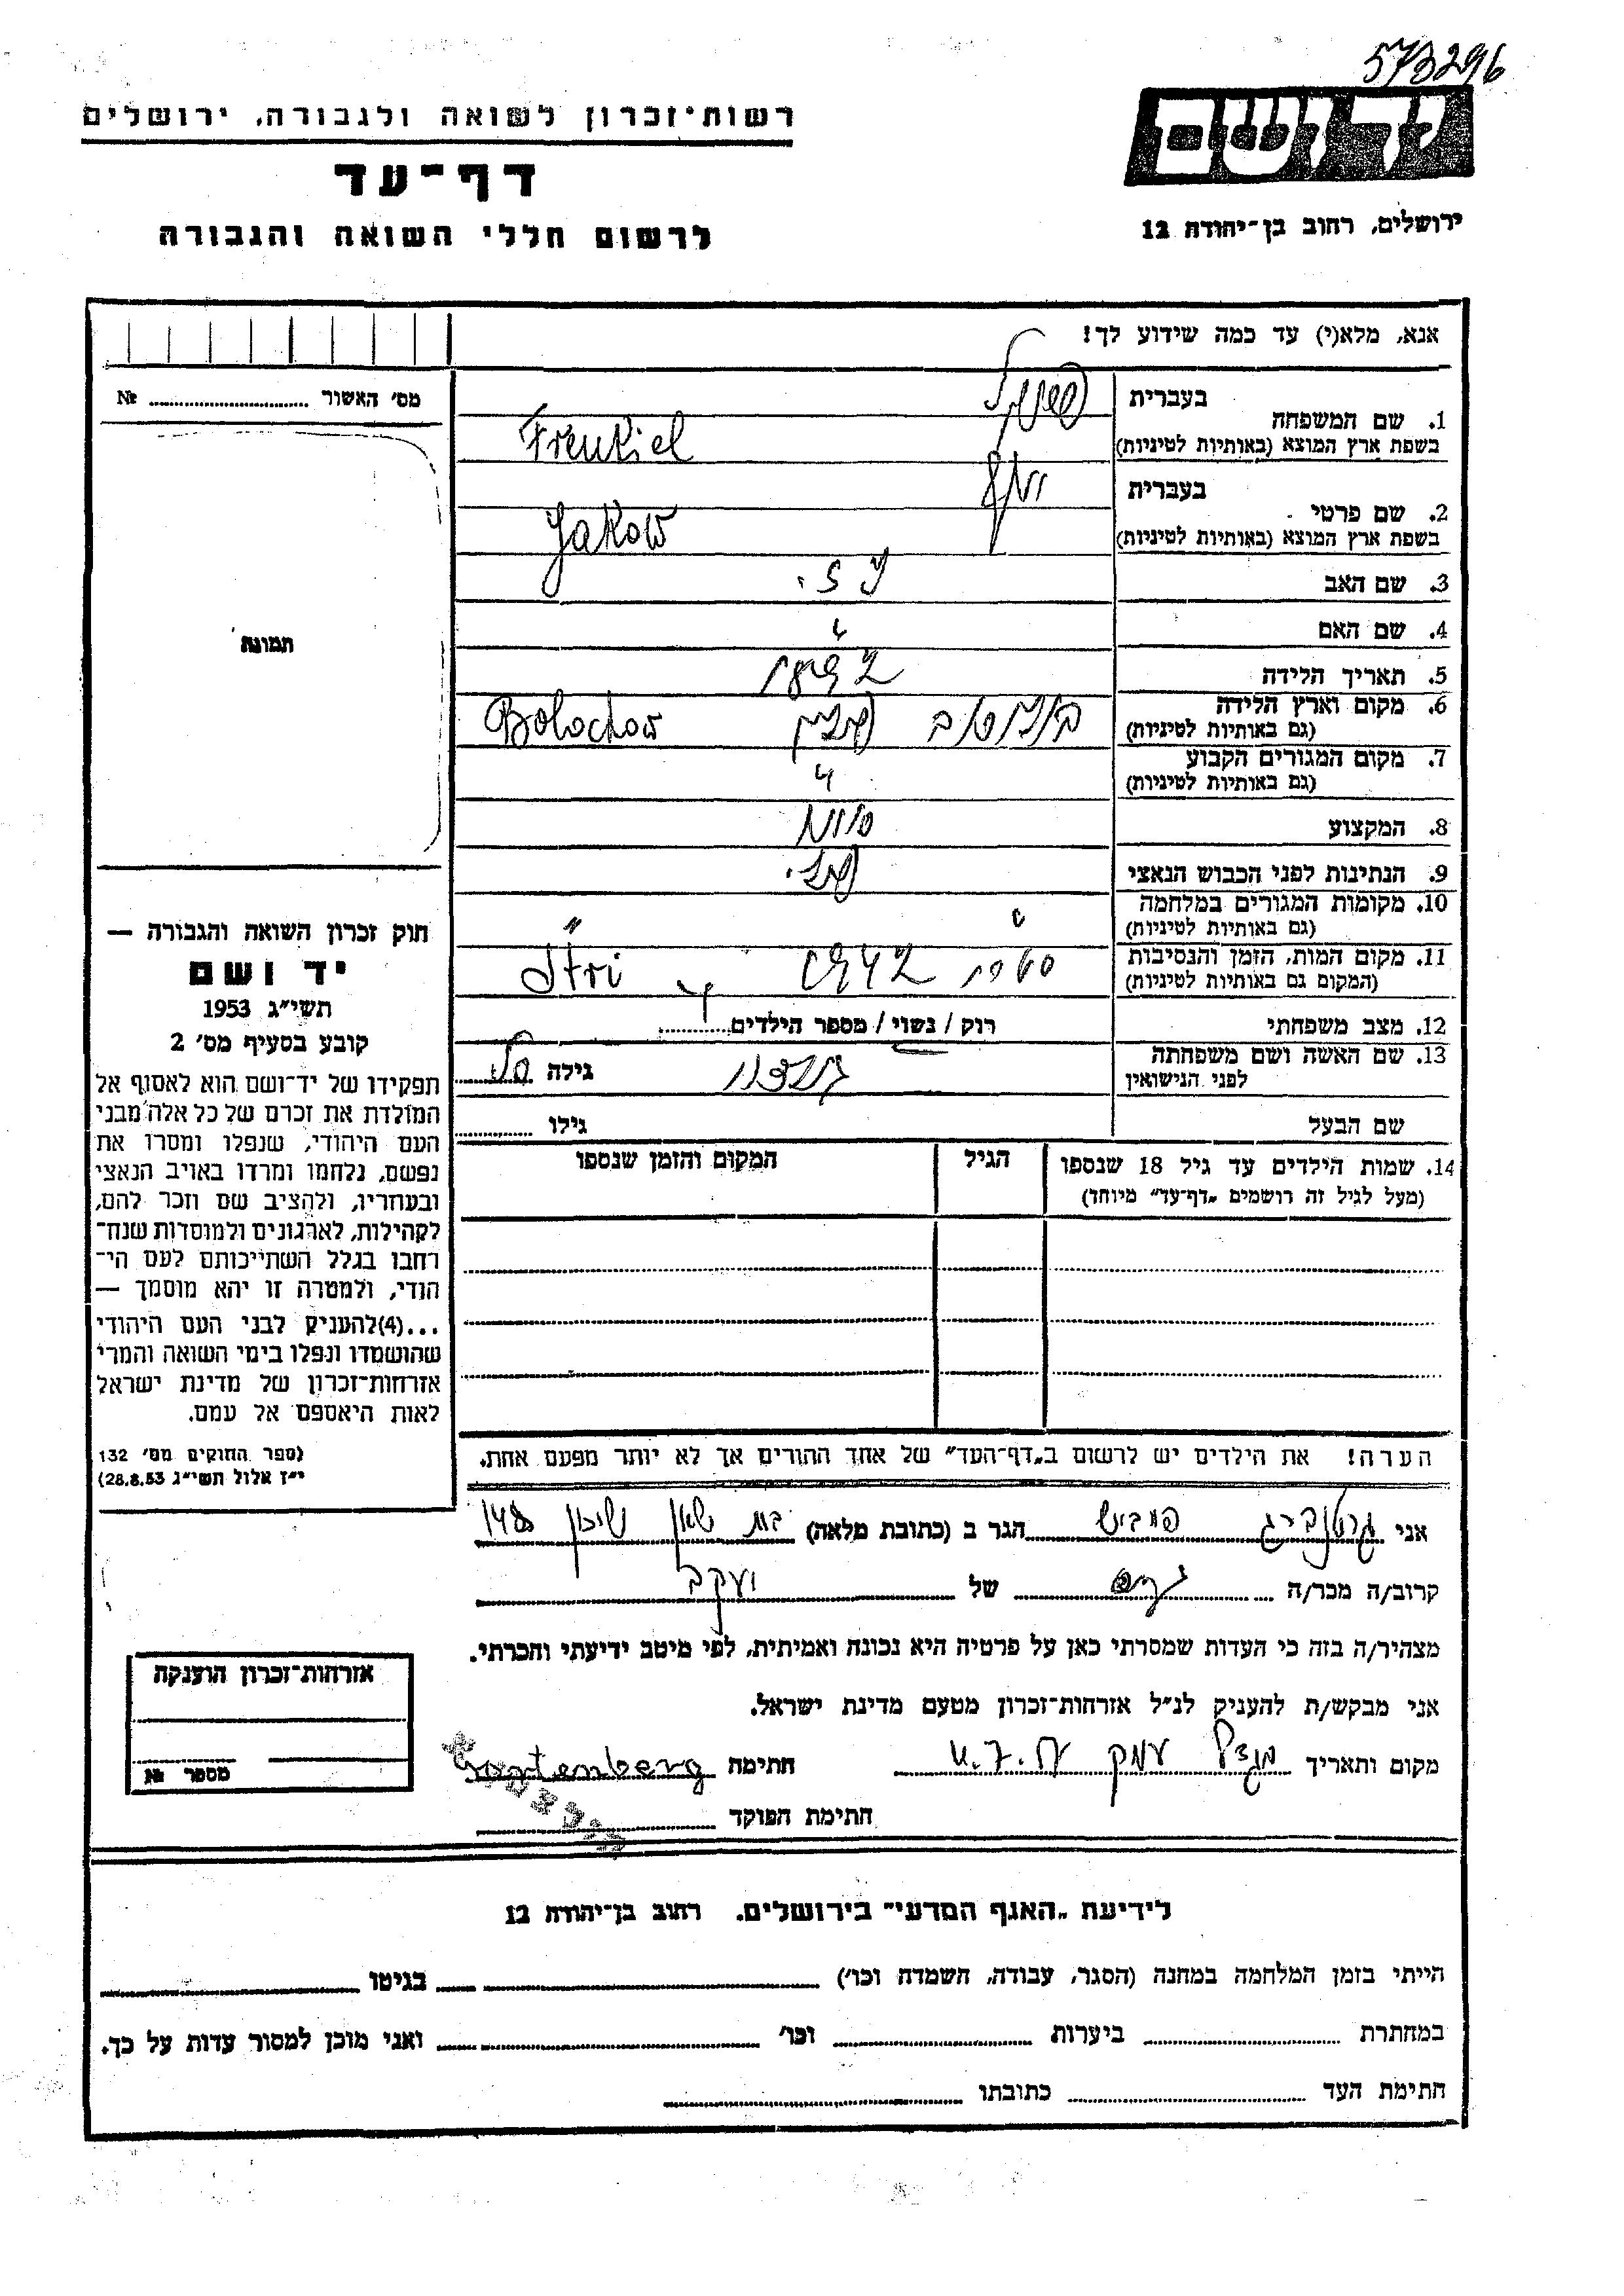 573296
יד ושם
ירושלים, רחוב בן־יהודה 12
רשות־זכרון לשואה ולגבורה, ירושלים
דף־עד
לרשום חללי השואה והגבורה
אנא, מלא(י) עד כמה שידוע לך!
מס׳ האשור ........ №
תמונה
חוק זכרון השואה והגבורה —
יד ושם
תשי״ג 1953
קובע בסעיף מס׳ 2
תפקידו של יד־ושם הוא לאסוף אל
המולדת את זכרם של כל אלה מבני
העם היהודי, שנפלו ומסרו את
נפשם, נלחמו ומרדו באויב הנאצי
ובעוזריו, ולהציב שם וזכר להם,
לקהילות, לארגונים ולמוסדות שנח־
רבו בגלל השתייכותם לעם הי־
הודי, ולמטרה זו יהא מוסמך —
...(4)להעניק לבני העם היהודי
שהושמדו ונפלו בימי השואה והמרי
אזרחות־זכרון של מדינת ישראל
לאות היאספם אל עמם.
(ספר החוקים מס׳ 132
י״ז אלול תשי״ג 28.8.53)
1. שם המשפחה בעברית
בשפת ארץ המוצא (באותיות לטיניות) Frenkiel
2. שם פרטי בעברית
בשפת ארץ המוצא (באותיות לטיניות) Jakow
3. שם האב
4. שם האם
5. תאריך הלידה
6. מקום וארץ הלידה
(גם באותיות לטיניות) Bolochow
7. מקום המגורים הקבוע
(גם באותיות לטיניות)
8. המקצוע
9. הנתינות לפני הכבוש הנאצי
10. מקומות המגורים במלחמה
(גם באותיות לטיניות)
11. מקום המות, הזמן והנסיבות 1942
(המקום גם באותיות לטיניות) Stri
12. מצב משפחתי רוק / נשוי / מספר הילדים
13. שם האשה ושם משפחתה
לפני הנישואין גילה
שם הבעל גילו
14. שמות הילדים עד גיל 18 שנספו הגיל המקום והזמן שנספו
(מעל לגיל זה רושמים „דף־עד״ מיוחד)
הערה! את הילדים יש לרשום ב„דף־העד״ של אחד ההורים אך לא יותר מפעם אחת.
אני גרטנברג הגר ב (כתובת מלאה) בית שאן שיכון
קרוב/ה מכר/ה של יעקב
מצהיר/ה בזה כי העדות שמסרתי כאן על פרטיה היא נכונה ואמיתית, לפי מיטב ידיעתי והכרתי.
אני מבקש/ת להעניק לנ״ל אזרחות־זכרון מטעם מדינת ישראל.
מקום ותאריך מגדל עמק חתימה Gartenberg
חתימת הפוקד
אזרחות־זכרון הוענקה
מספר №
לידיעת „האגף המדעי״ בירושלים. רחוב בן־יהודה 12
הייתי בזמן המלחמה במחנה (הסגר, עבודה, השמדה וכו׳) בגיטו
במחתרת ביערות וכו׳ ואני מוכן למסור עדות על כך.
חתימת העד כתובתו